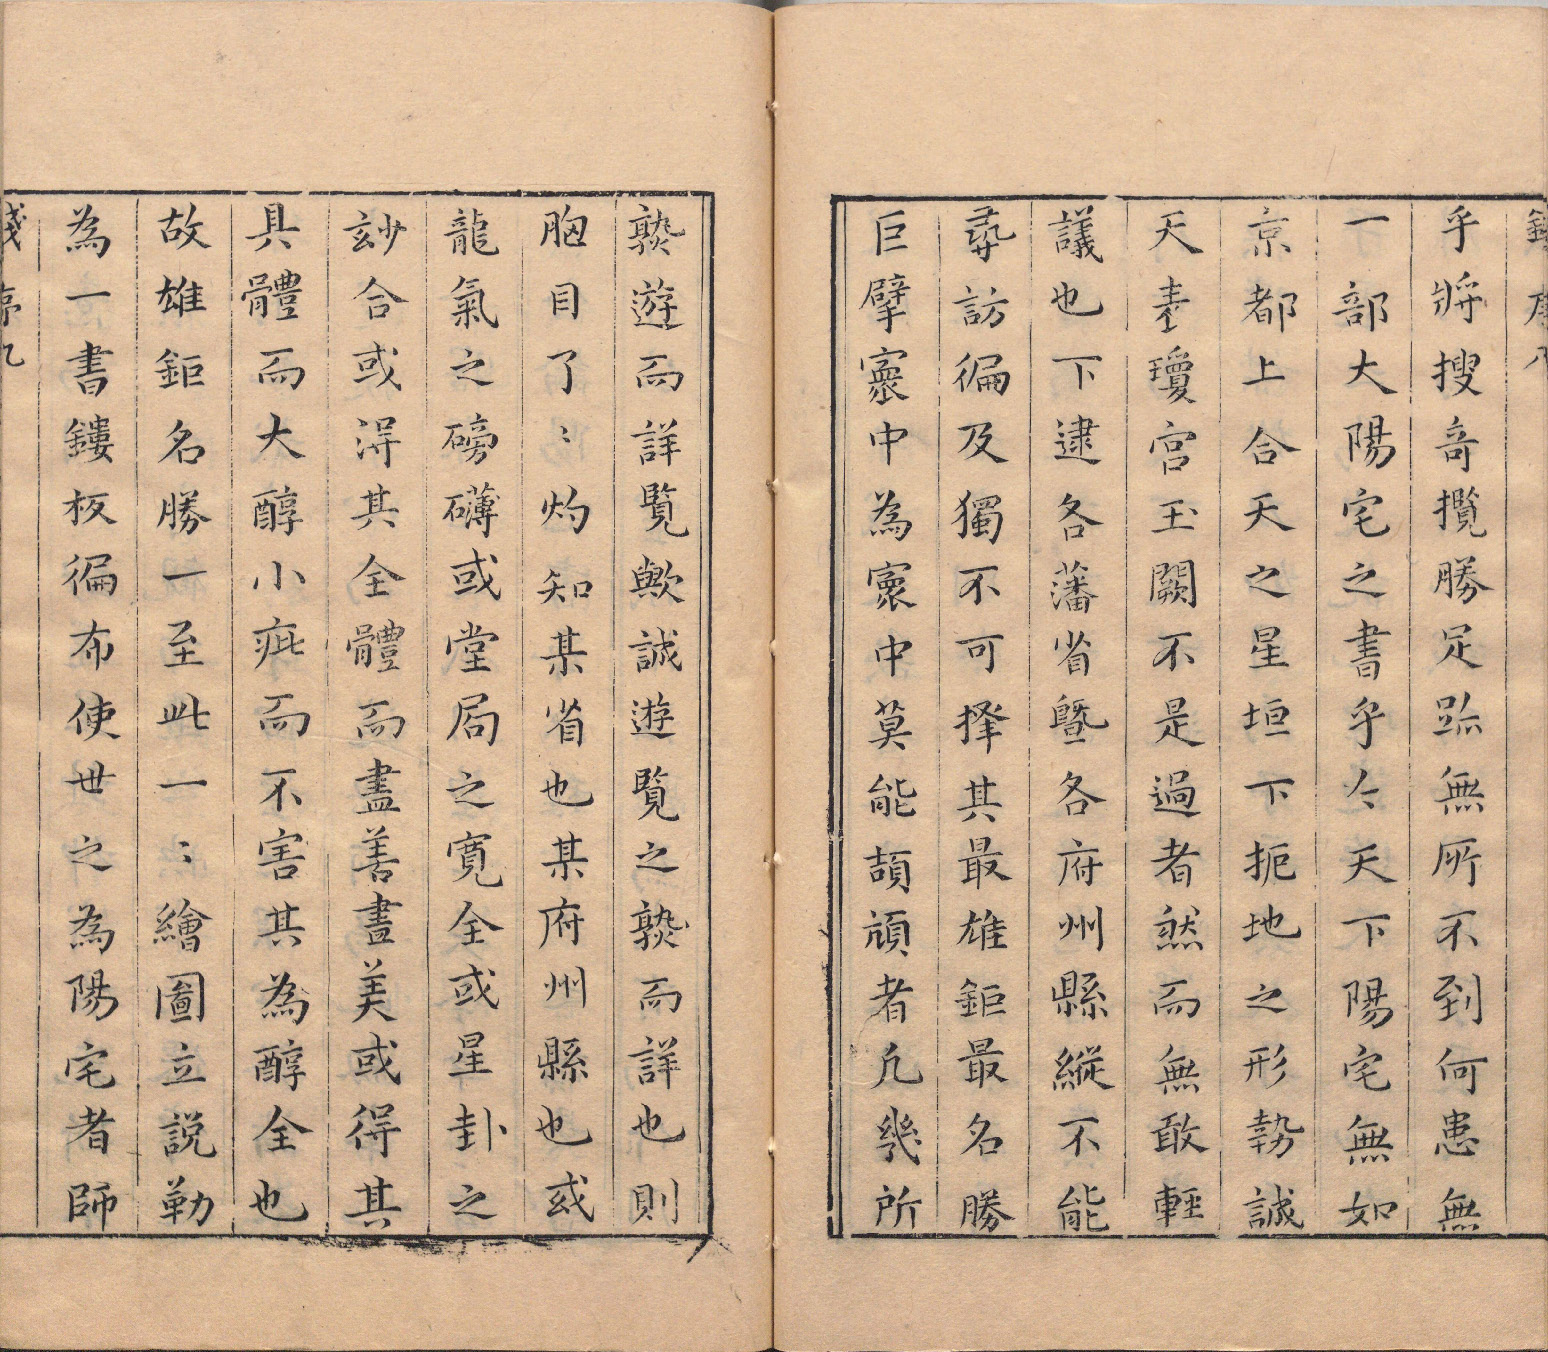 乎將搜奇攬勝足跡無所不到何患無
一部大陽宅之書乎今天下陽宅無如
京都上合天之星垣下扼地之形勢誠
天造瓊宮玉闕不是過者然而無敢輕
議也下逮各藩省曁各府州縣縱不能
尋訪徧及獨不可擇其最雄鉅最名勝
巨擘寰中為寰中莫能頡頏者凢幾所
熟遊而詳覽歟誠遊覽之熟而詳也則
胸目了〻灼知某省也某府州縣也或
龍氣之磅礴或堂局之寬全或星卦之
玅合或得其全體而盡善盡美或得其
具體而大醇小疵而不害其為醇全也
故雄鉅名勝一至此一〻繪圖立說勒
為一書鏤板徧布使世之為陽宅者師